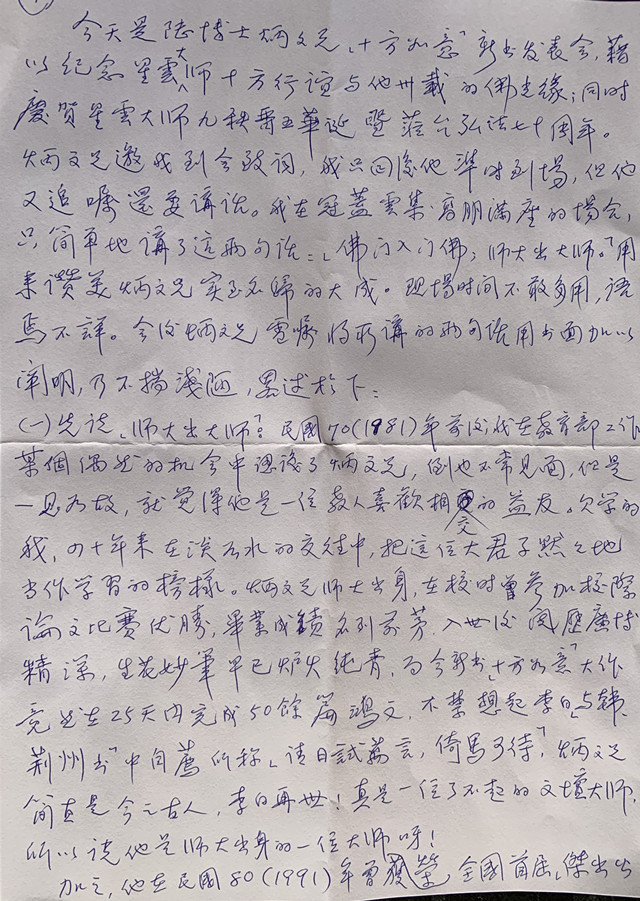 今天是陆博士炳文兄「十方如意」新书发表会,藉
以紀念星雲大师十方行谊与他卅載的佛光缘;同时
慶賀星雲大师九秩晋五華诞暨蒞台弘法七十周年。
炳文兄邀我到会致词,我只回係他準时到場,但他
又追嘱還要講话。我在冠蓋雲集、高朋满座的場合,
只简单地講了這两句话:「佛门入门佛;师大出大师。」用
来讚美炳文兄实至名歸的大成。现場时间不敢多用,语
焉不詳。会後炳文兄電嘱将所講的两句话用书面加以
阐明,乃不揣淺陋,累述於下:
(一)先说「师大出大师」:民國70(1981)年前後,我在教育部工作
某個偶然的机会中認識了炳文兄,倒也不常見面,但是
一見如故,就觉得他是一位教人喜歡相交的益友。欠学的
我,四十年来在淡如水的交往中,把這位大君子默默地
当作学習的榜樣。炳文兄师大出身,在校时曾参加校際
論文比賽优勝,畢業成績名列前茅,入世後阅歷廣博
精深,生花妙筆早已炉火纯青,而今新书「十方如意」大作
竟然在25天内完成50餘篇鴻文,不禁想起李白「与韩
荆州书」中自薦所称「请日試萬言,倚馬可待」,炳文兄
简直是今之古人,李白再世!真是一位了不起的文壇大师,
所以说他是师大出身的一位大师呀!
加之,他在民國80(1991)年曾獲榮全國首屆「傑出